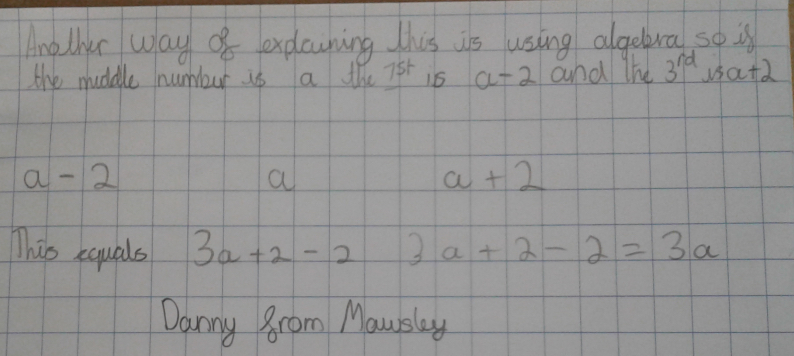 Another way of explaining this is using algebra so if
the middle number is a the 1st is a-2 and the 3rd is a+2
a - 2 a a + 2
This equals 3a + 2 - 2 3a + 2 - 2 = 3a
Danny from Mawsley